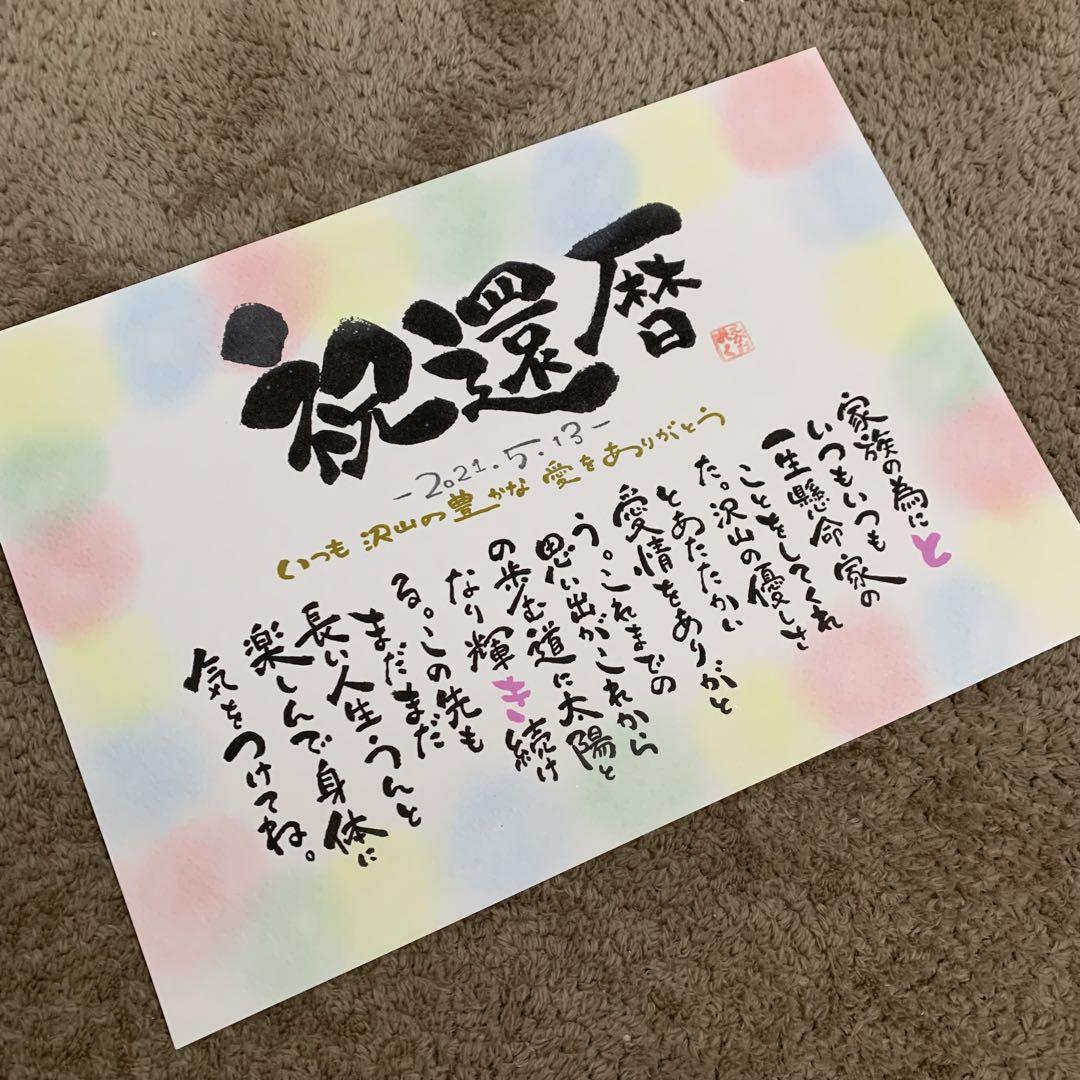 祝還暦
-2021.5.13-
いつも沢山の豊かな愛をありがとう
家族の為にと
いつもいつも家の
一生懸命
ことをしてくれ
た。沢山の優しさ
とあたたかい
愛情をありがと
う。これまでの
思い出がこれから
の歩む道に太陽と
なり輝き続け
る。この先も
まだまだ
長い人生うんと
楽しんで身体に
気をつけてね。